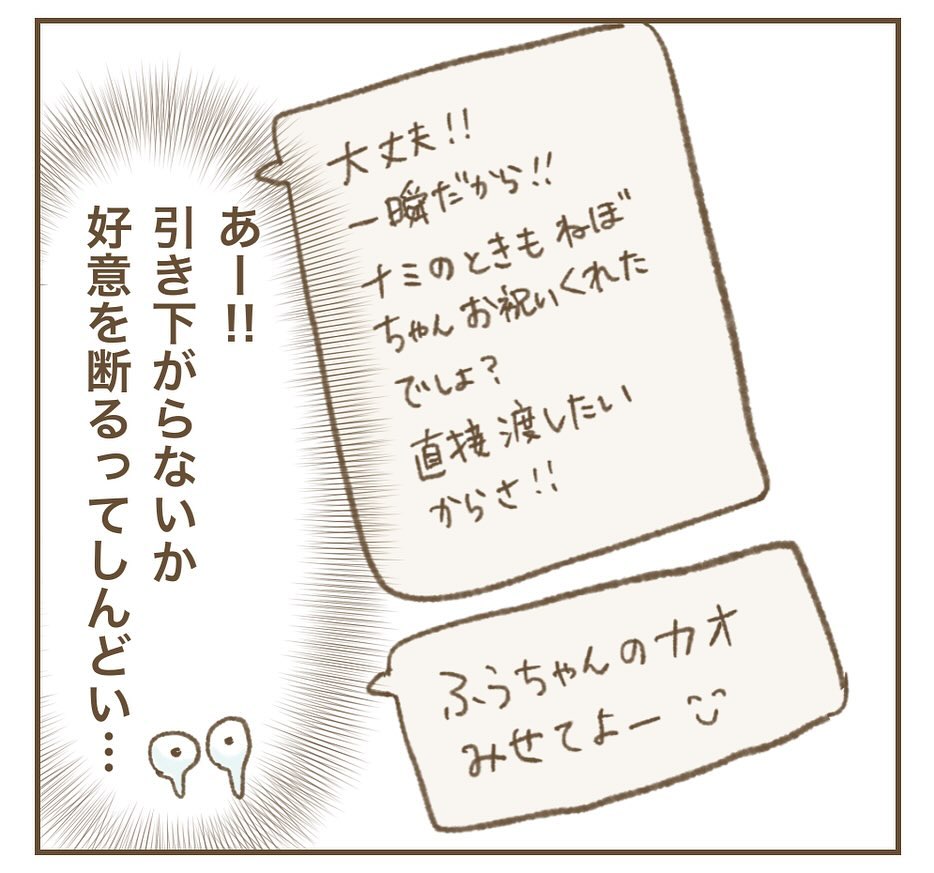 大丈夫!!
一瞬だから!!
ナミのときも ねぼ
ちゃん お祝いくれた
でしょ?
直接 渡したい
からさ!!
ふうちゃんのカオ
みせてよー
あー!!
引き下がらないか
好意を断るってしんどい…